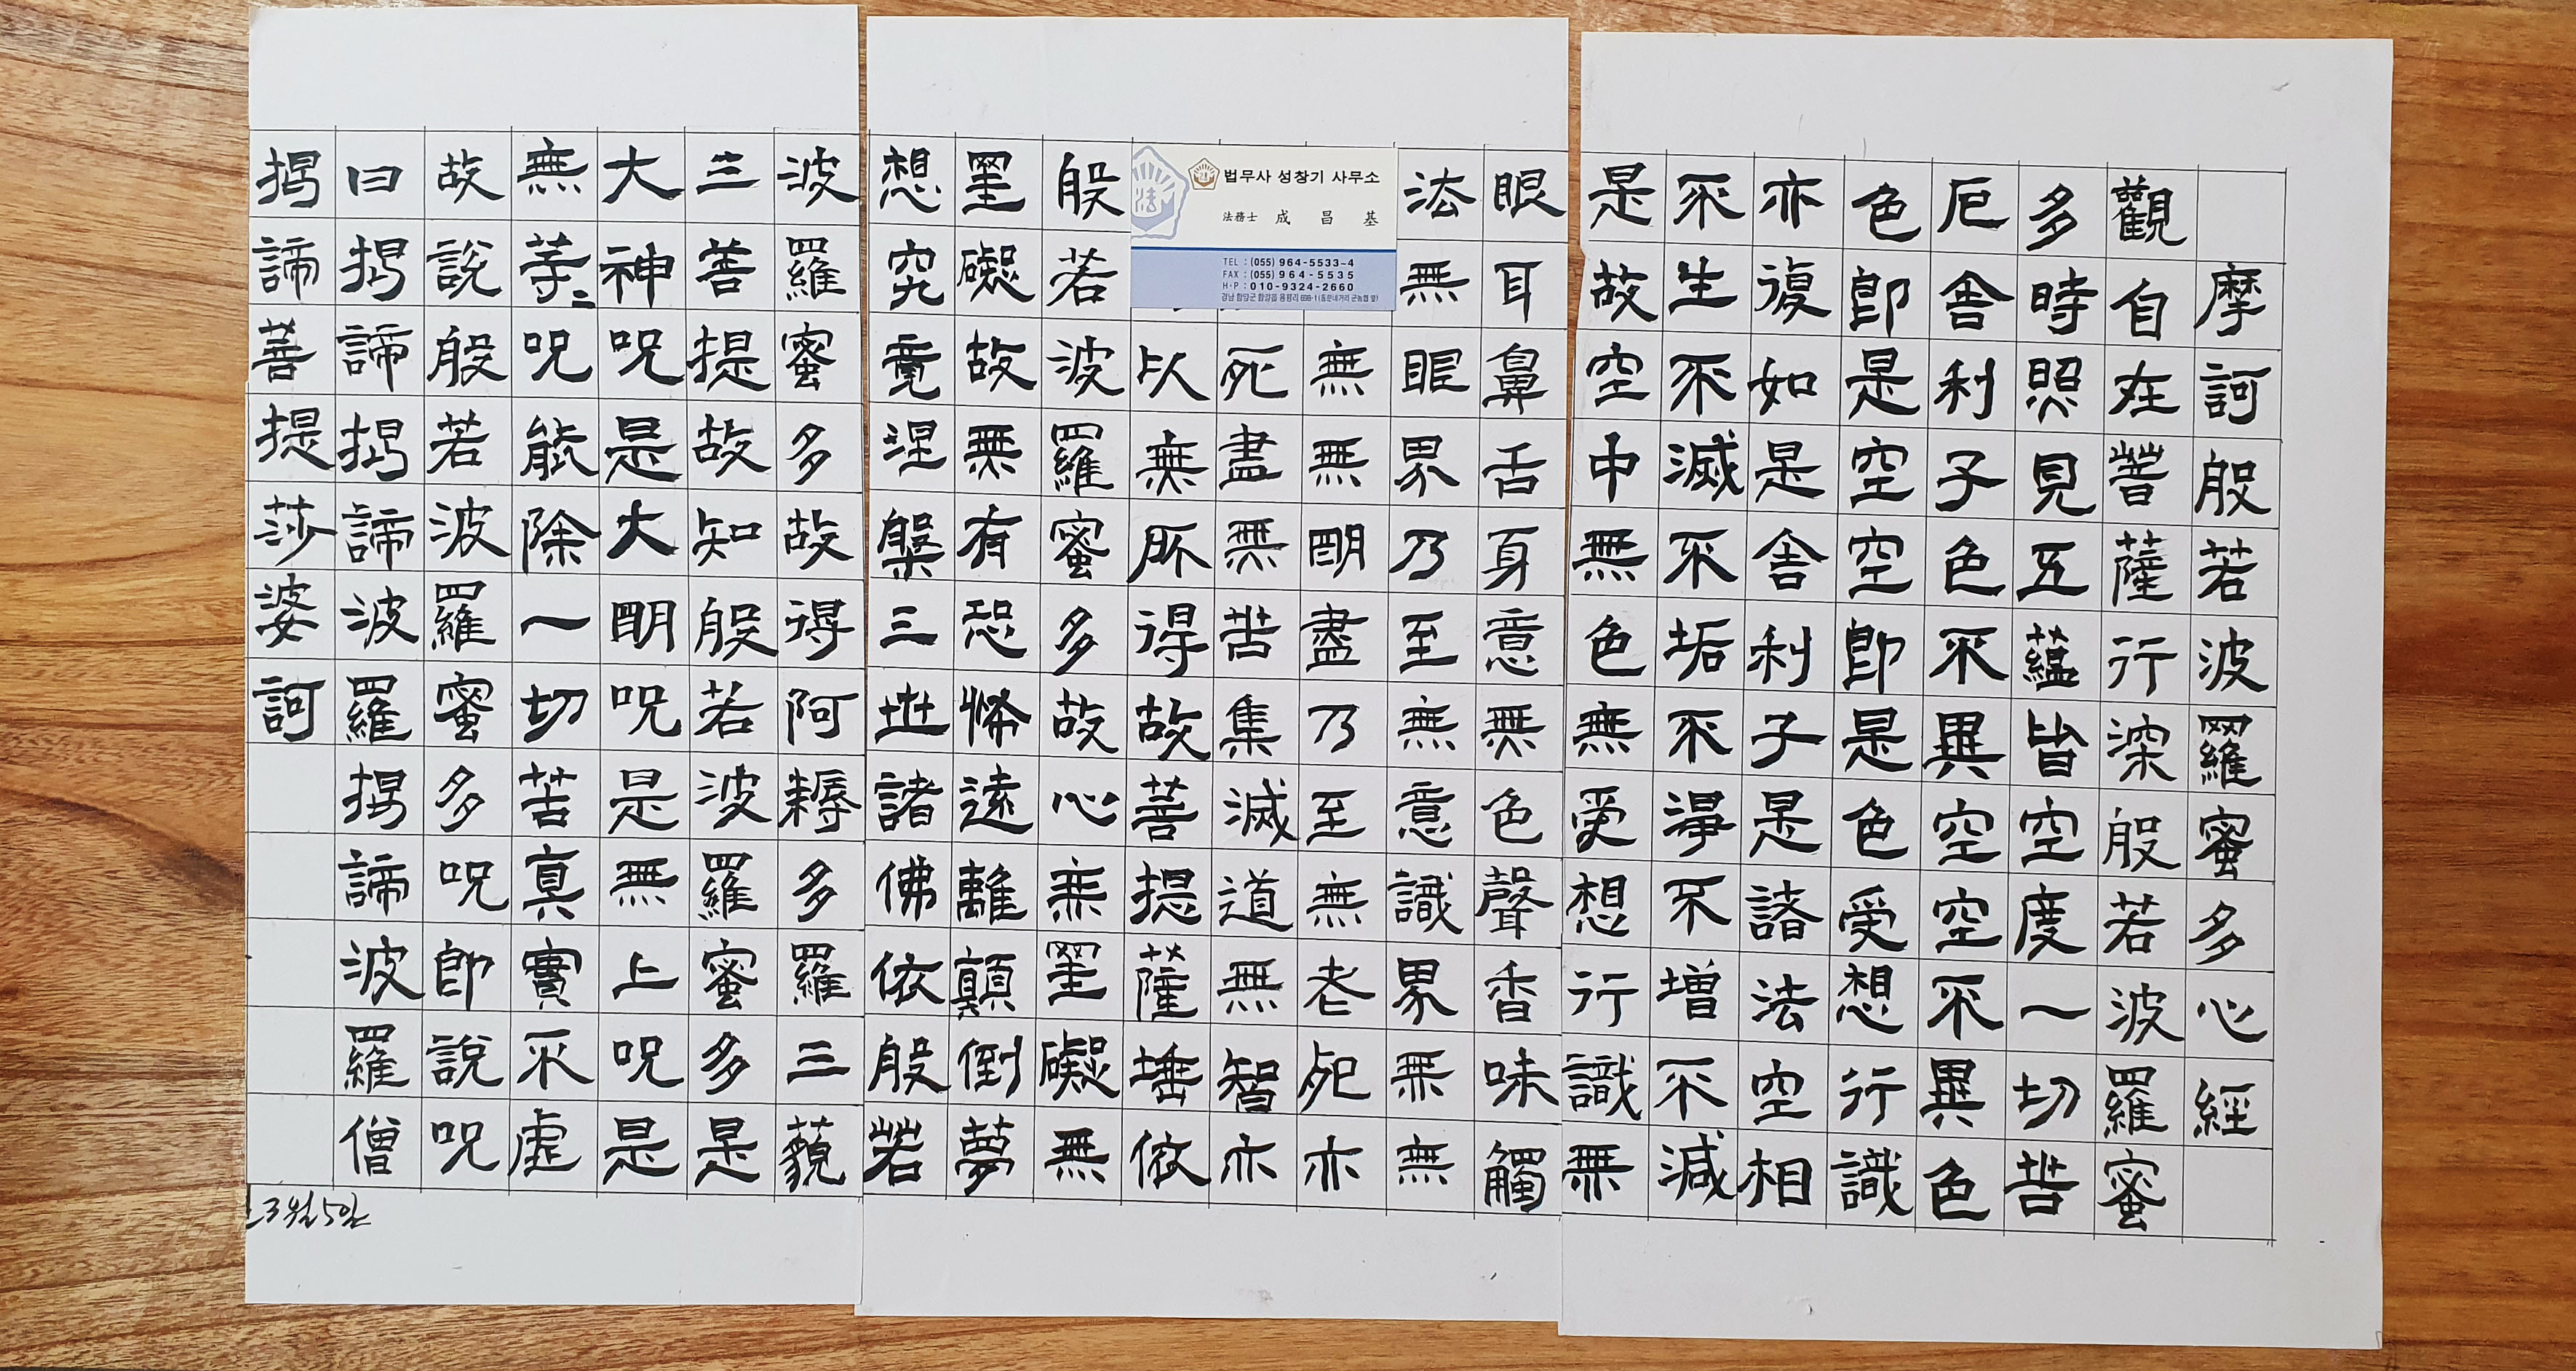 摩訶般若波羅蜜多心經
觀自在菩薩行深般若波羅蜜
多時照見五蘊皆空度一切苦
厄舍利子色不異空空不異色
色即是空空即是色受想行識
亦復如是舍利子是諸法空相
不生不滅不垢不淨不增不減
是故空中無色無受想行識無
眼耳鼻舌身意無色聲香味觸
法無眼界乃至無意識界無無
無無明盡乃至無老死亦
死盡無苦集滅道無智亦
以無所得故菩提薩埵依
般若波羅蜜多故心無罣礙無
罣礙故無有恐怖遠離顛倒夢
想究竟涅槃三世諸佛依般若
波羅蜜多故得阿耨多羅三藐
三菩提故知般若波羅蜜多是
大神呪是大明呪是無上呪是
無等〻呪能除一切苦真實不虛
故說般若波羅蜜多呪即說呪
曰揭諦揭諦波羅揭諦波羅僧
揭諦菩提莎婆訶
3월5일
법무사 성창기 사무소
法務士 成 昌 基
TEL : (055) 964-5533~4
FAX : (055) 964-5535
H·P : 010-9324-2660
경남 함양군 함양읍 용평리 698-1
法